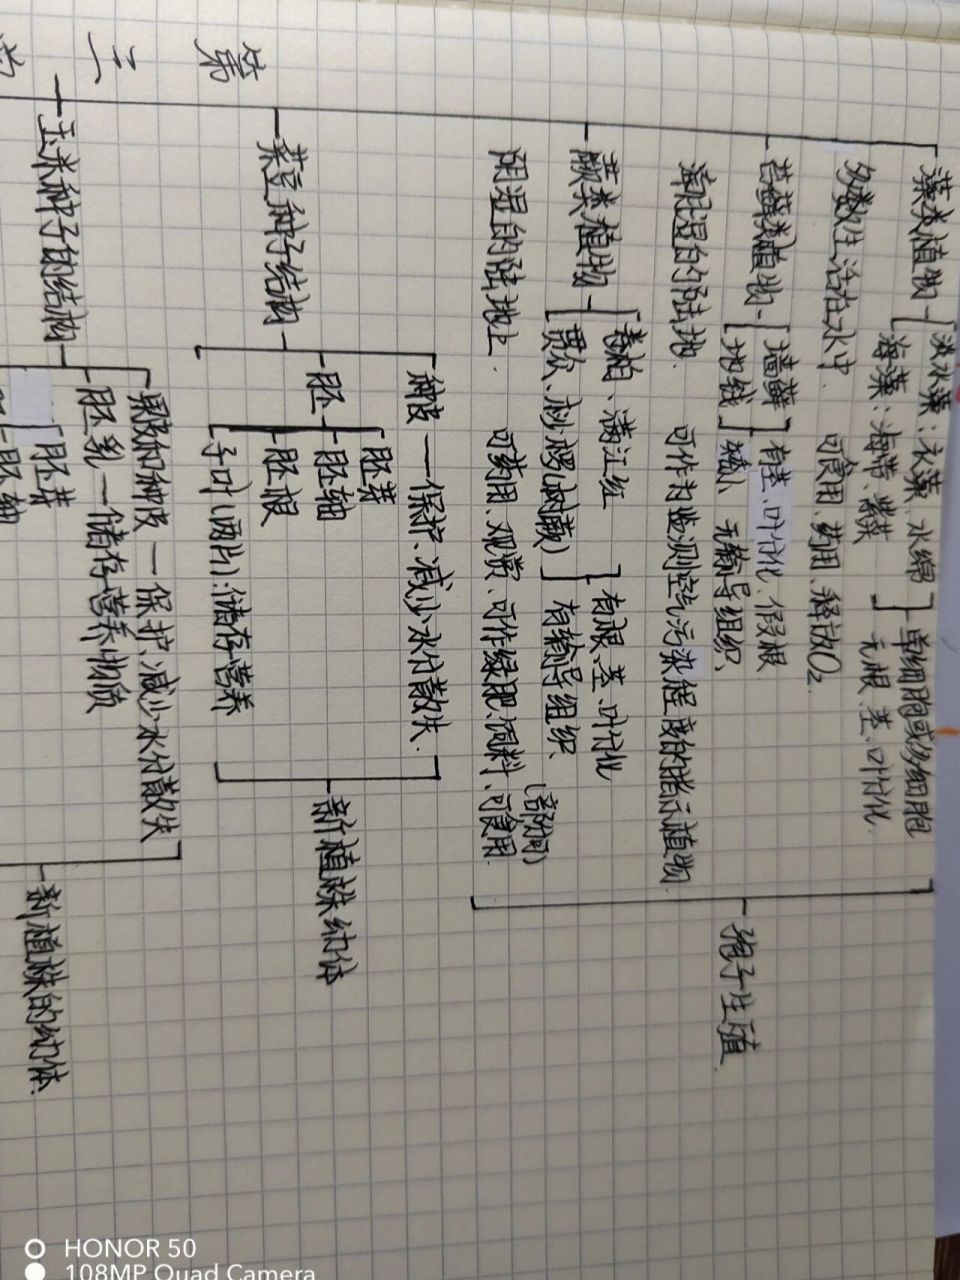 藻类植物
淡水藻：衣藻、水绵
单细胞或多细胞
海藻：海带、紫菜
无根、茎、叶分化
多数生活在水中 可食用、药用、释放O₂
苔藓类植物
墙藓
有茎、叶分化、假根
地钱
矮小 无输导组织
潮湿的陆地 可作为监测空气污染程度的指示植物
蕨类植物
卷柏、满江红
有根、茎、叶分化
贯众、桫椤(树蕨)
有输导组织
阴湿的陆地上 可药用、观赏、可作绿肥、饲料、可食用
(部分)
孢子生殖
第三
菜豆种子结构
种皮—保护、减少水分散失
胚
胚芽
胚轴
胚根
子叶(两片)：储存营养
新植株幼体
玉米种子的结构
果皮和种皮—保护、减少水分散失
胚乳—储存营养物质
胚芽
胚轴
新植株的幼体
HONOR 50
108MP Quad Camera